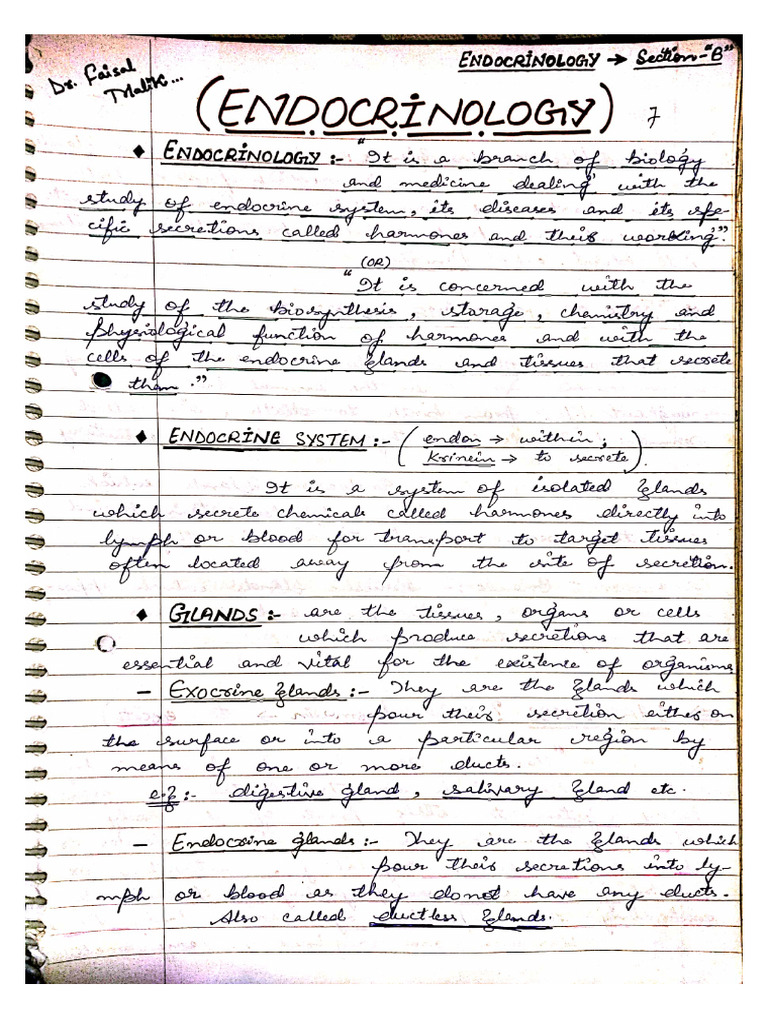 ENDOCRINOLOGY → Section-"B"
Dr. Faisal
Malik...
(ENDOCRINOLOGY) 7
♦ ENDOCRINOLOGY :- "It is a branch of biology
and medicine dealing with the
study of endocrine system, its diseases and its spe-
cific secretions called harmones and their working."
(OR)
"It is concerned with the
study of the biosynthesis, storage, chemistry and
physiological function of harmones and with the
cells of the endocrine glands and tissues that secrete
them."
♦ ENDOCRINE SYSTEM :- (endon → within;
krinein → to secrete).
It is a system of isolated glands
which secrete chemicals called harmones directly into
lymph or blood for transport to target tissues
often located away from the site of secretion.
♦ GLANDS :- are the tissues, organs or cells
which produce secretions that are
essential and vital for the existence of organisms
- Exocrine glands :- They are the glands which
pour their secretion either on
the surface or into a particular region by
means of one or more ducts.
e.g :- digestive gland, salivary gland etc.
- Endocrine glands :- They are the glands which
pour their secretions into ly-
mph or blood as they donot have any ducts.
Also called ductless glands.